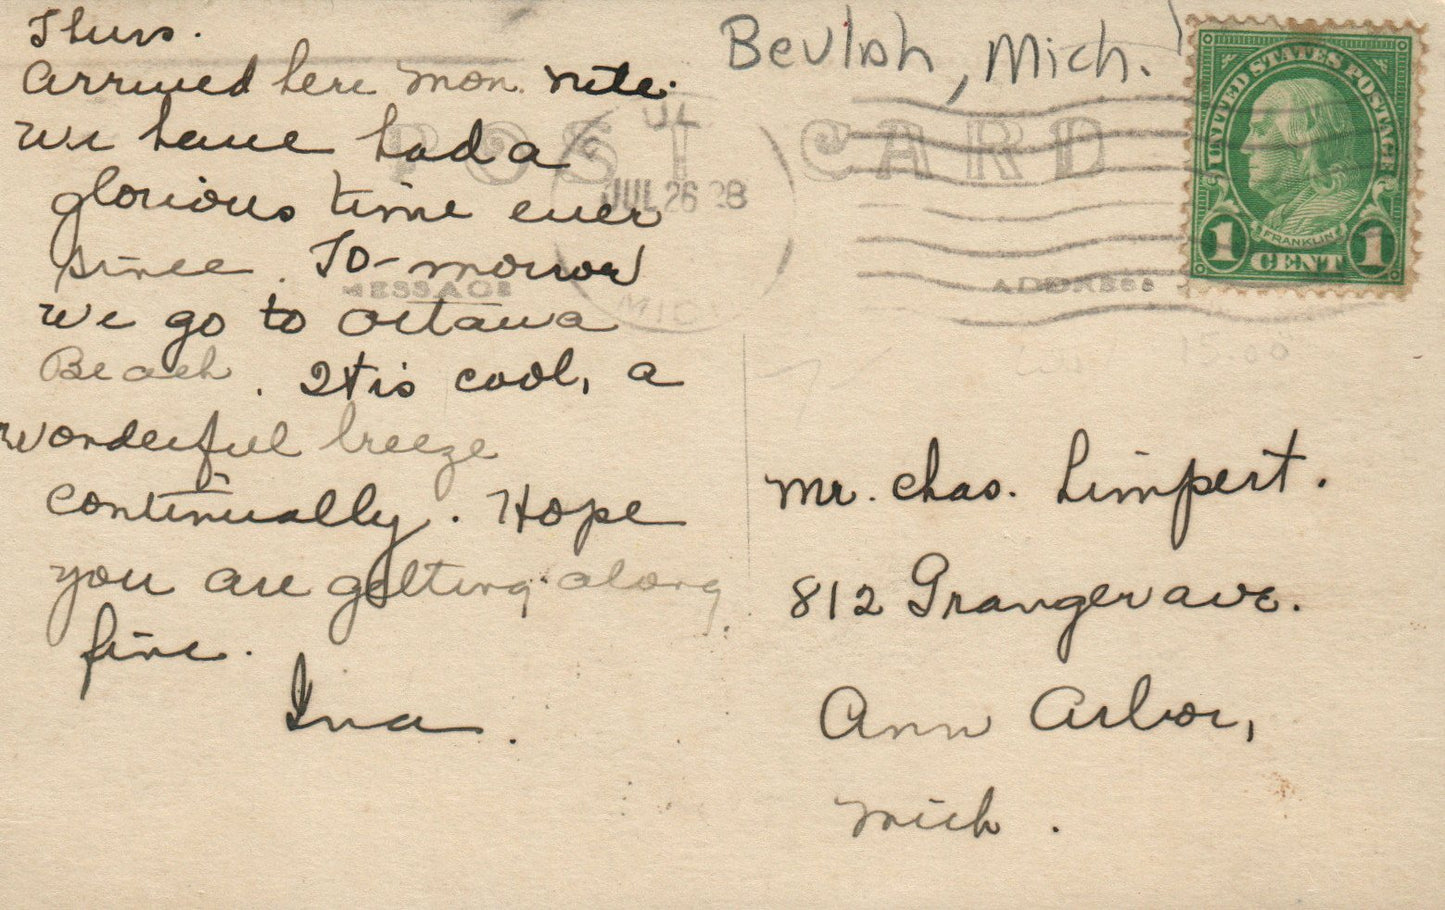 Thurs.
Arrived here Mon. nite.
We have had a
glorious time ever
since. To-morrow
we go to Ottawa
Beach. It is cool, a
wonderful breeze
continually. Hope
you are getting along
fine.
Ina.
Beulah, Mich.
POST CARD
JUL 26 28
MICH
MESSAGE
ADDRESS
UNITED STATES POSTAGE
FRANKLIN
1 CENT 1
Mr. Chas. Limpert.
812 Granger ave.
Ann Arbor,
Mich.